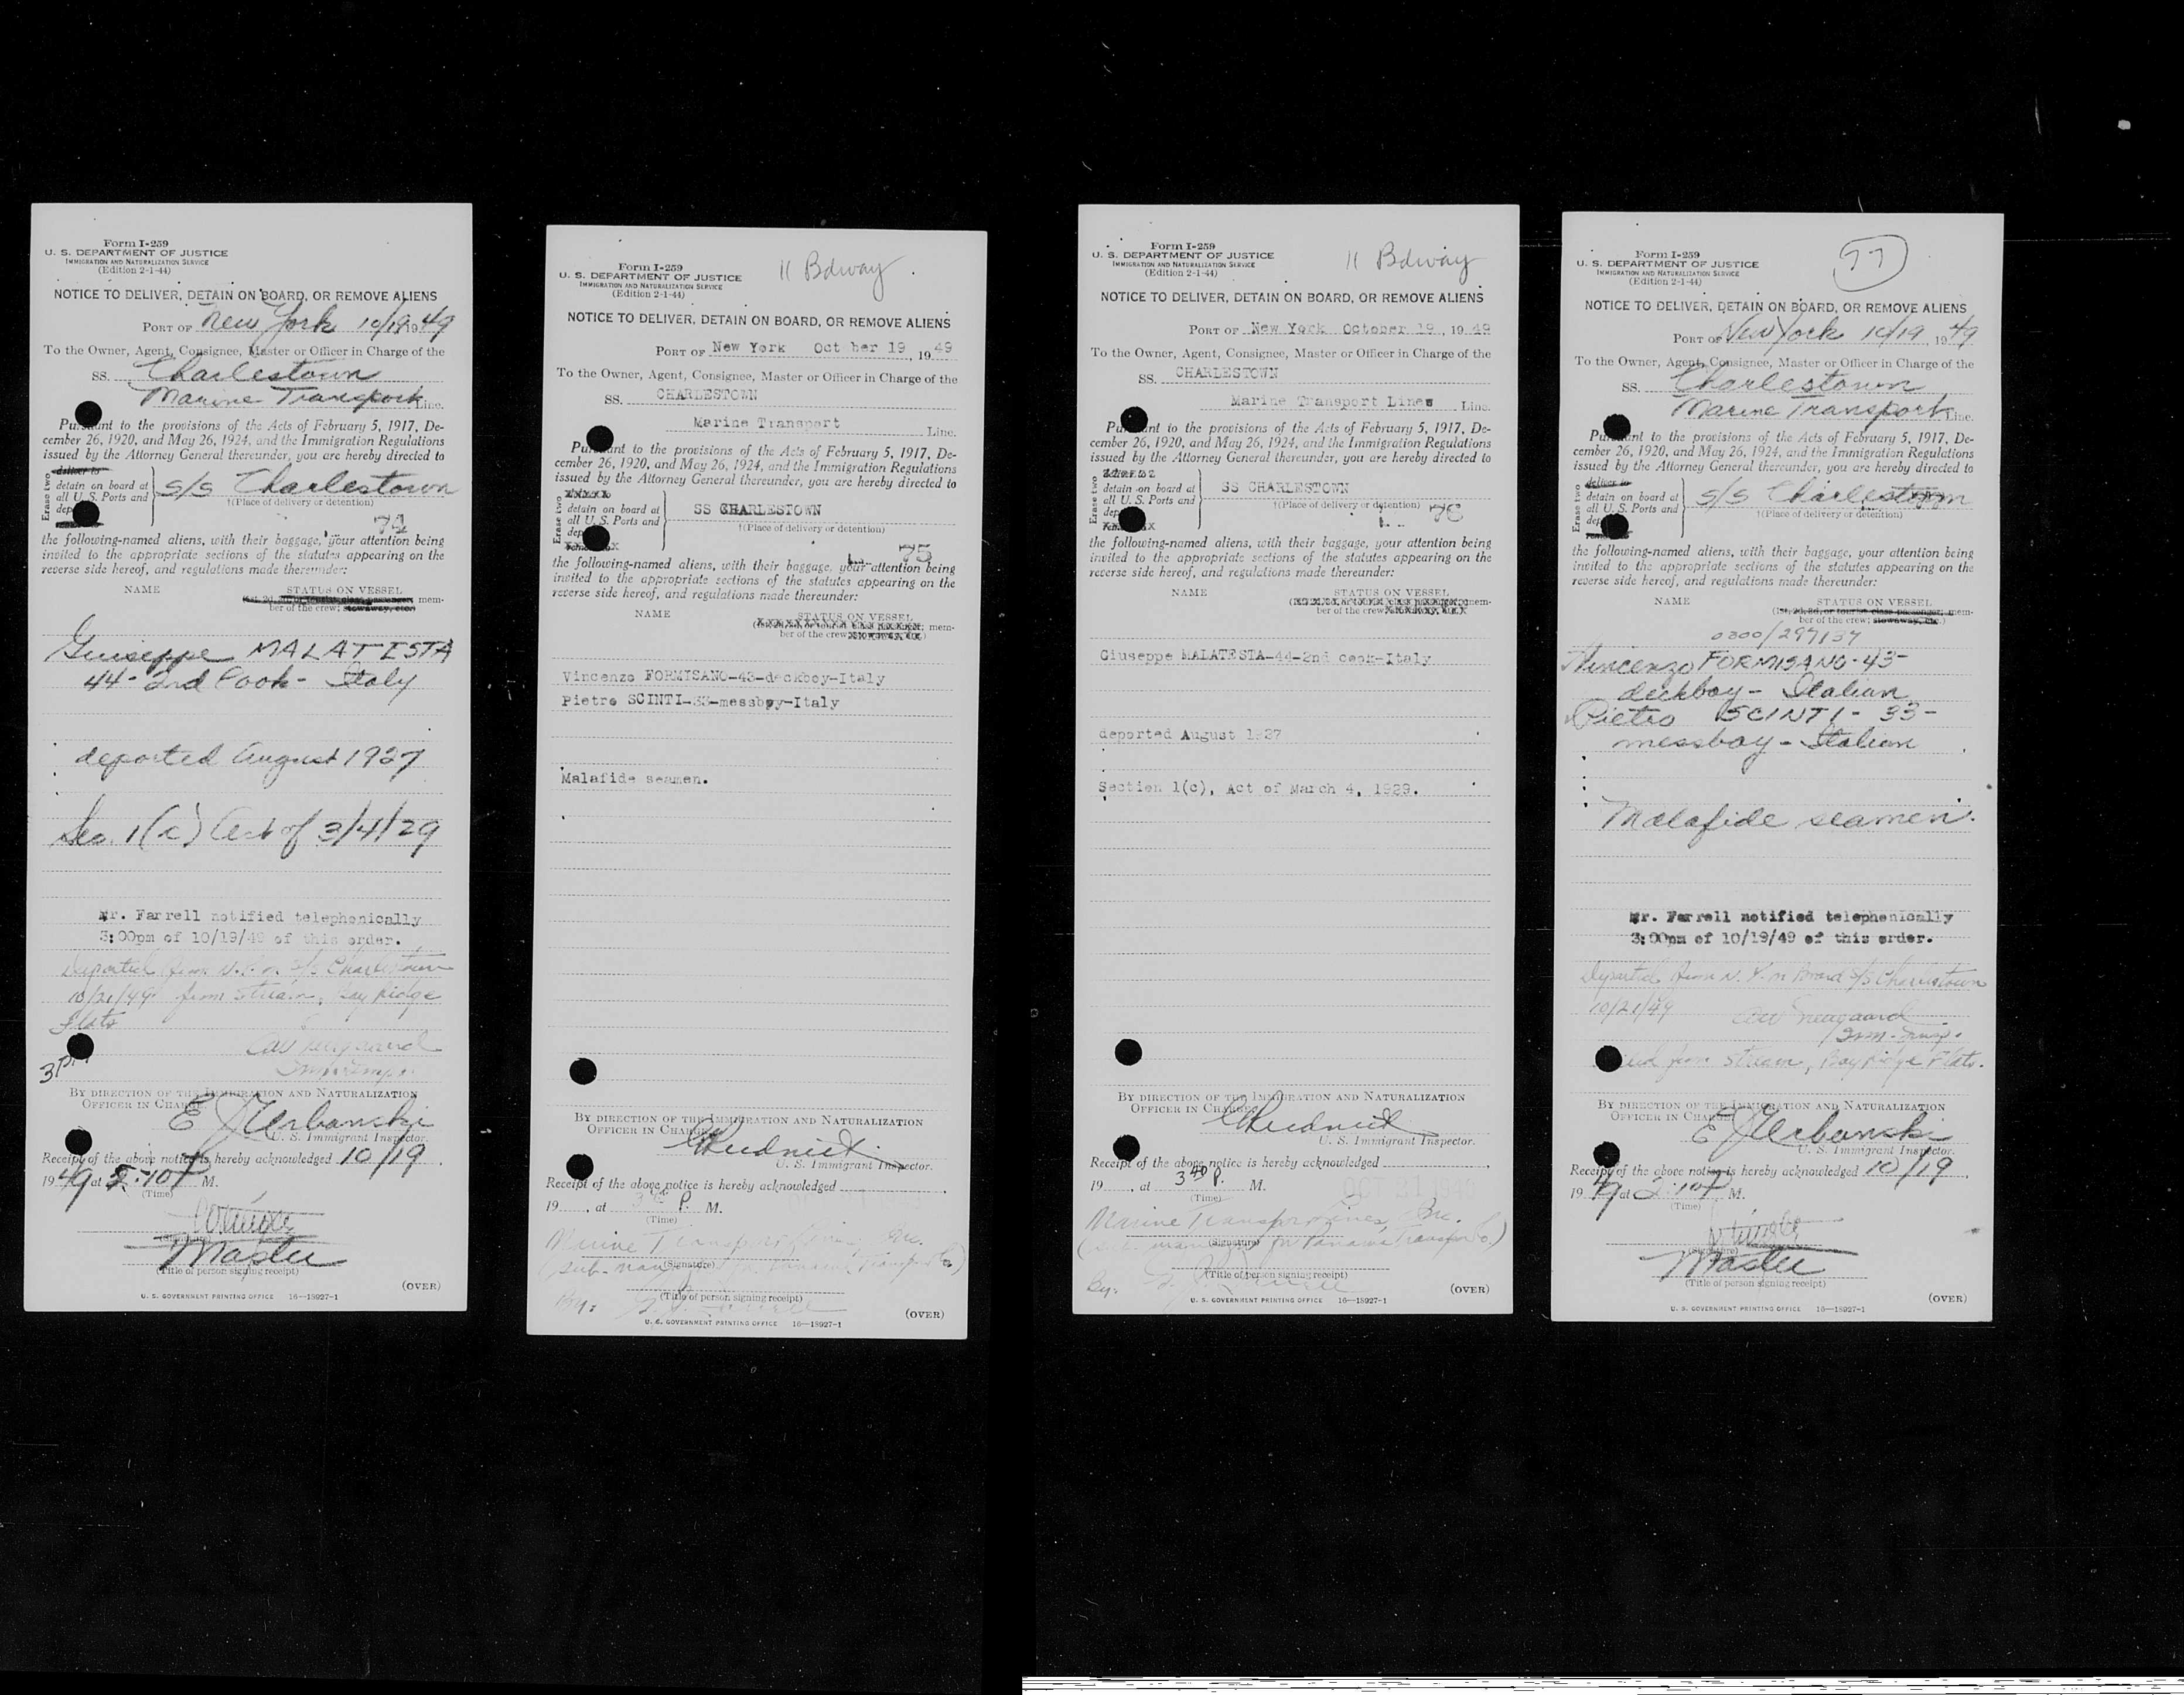 Form I-259
U. S. DEPARTMENT OF JUSTICE
IMMIGRATION AND NATURALIZATION SERVICE
(Edition 2-1-44)
NOTICE TO DELIVER, DETAIN ON BOARD, OR REMOVE ALIENS
PORT OF New York 10/19 1949
To the Owner, Agent, Consignee, Master or Officer in Charge of the
SS. Charlestown
Marine Transport Line.
Pursuant to the provisions of the Acts of February 5, 1917, De-
cember 26, 1920, and May 26, 1924, and the Immigration Regulations
issued by the Attorney General thereunder, you are hereby directed to
Erase two
deliver to
detain on board at
all U. S. Ports and
dep
S/S Charlestown
†(Place of delivery or detention)
the following-named aliens, with their baggage, your attention being
invited to the appropriate sections of the statutes appearing on the
reverse side hereof, and regulations made thereunder:
NAME STATUS ON VESSEL
(1st, 2d, 3d, or tourist class passenger; mem-
ber of the crew; stowaway, etc.)
Giuseppe MALATESTA
44 - 2nd Cook - Italy
deported August 1927
Sec. 1(c) Act of 3/4/29
Mr. Farrell notified telephonically
3:00pm of 10/19/49 of this order.
Departed from N.Y. on S/S Charlestown
10/21/49 from stream, Bay Ridge
Flats
3 PM
BY DIRECTION OF THE IMMIGRATION AND NATURALIZATION
OFFICER IN CHARGE.
E J Urbanski
U. S. Immigrant Inspector.
Receipt of the above notice is hereby acknowledged 10/19,
1949 at 2:10 P M.
(Time)
(Signature)
Master
(Title of person signing receipt)
(OVER)
U. S. GOVERNMENT PRINTING OFFICE 16—18927-1
Form I-259
U. S. DEPARTMENT OF JUSTICE
IMMIGRATION AND NATURALIZATION SERVICE
(Edition 2-1-44)
11 Bdway
NOTICE TO DELIVER, DETAIN ON BOARD, OR REMOVE ALIENS
PORT OF New York Oct ber 19, 1949
To the Owner, Agent, Consignee, Master or Officer in Charge of the
SS. CHARLESTOWN
Marine Transport Line.
Pursuant to the provisions of the Acts of February 5, 1917, De-
cember 26, 1920, and May 26, 1924, and the Immigration Regulations
issued by the Attorney General thereunder, you are hereby directed to
Erase two
detain on board at
all U. S. Ports and
dep
SS CHARLESTOWN
†(Place of delivery or detention)
75
the following-named aliens, with their baggage, your attention being
invited to the appropriate sections of the statutes appearing on the
reverse side hereof, and regulations made thereunder:
NAME STATUS ON VESSEL
mem-
ber of the crew;
Vincenzo FORMISANO-43-deckboy-Italy
Pietro SCINTI-33-messboy-Italy
Malafide seamen.
BY DIRECTION OF THE IMMIGRATION AND NATURALIZATION
OFFICER IN CHARGE.
U. S. Immigrant Inspector.
Receipt of the above notice is hereby acknowledged
19, at 3 P. M.
(Time)
Marine Transport Lines, Inc.
(Signature)
(Title of person signing receipt)
By:
(OVER)
U. S. GOVERNMENT PRINTING OFFICE 16—18927-1
Form I-259
U. S. DEPARTMENT OF JUSTICE
IMMIGRATION AND NATURALIZATION SERVICE
(Edition 2-1-44)
11 Bdway
NOTICE TO DELIVER, DETAIN ON BOARD, OR REMOVE ALIENS
PORT OF New York October 19, 1949
To the Owner, Agent, Consignee, Master or Officer in Charge of the
SS. CHARLESTOWN
Marine Transport Lines Line.
Pursuant to the provisions of the Acts of February 5, 1917, De-
cember 26, 1920, and May 26, 1924, and the Immigration Regulations
issued by the Attorney General thereunder, you are hereby directed to
Erase two
detain on board at
all U. S. Ports and
dep
SS CHARLESTOWN
†(Place of delivery or detention)
76
the following-named aliens, with their baggage, your attention being
invited to the appropriate sections of the statutes appearing on the
reverse side hereof, and regulations made thereunder:
NAME STATUS ON VESSEL
mem-
ber of the crew;
Giuseppe MALATESTA-44-2nd cook-Italy
deported August 1927
Section 1(c), Act of March 4, 1929.
BY DIRECTION OF THE IMMIGRATION AND NATURALIZATION
OFFICER IN CHARGE.
U. S. Immigrant Inspector.
Receipt of the above notice is hereby acknowledged
19, at 3 40 P. M.
(Time)
Marine Transport Lines, Inc.
(Signature)
(Title of person signing receipt)
By:
(OVER)
U. S. GOVERNMENT PRINTING OFFICE 16—18927-1
Form I-259
U. S. DEPARTMENT OF JUSTICE
IMMIGRATION AND NATURALIZATION SERVICE
(Edition 2-1-44)
77
NOTICE TO DELIVER, DETAIN ON BOARD, OR REMOVE ALIENS
PORT OF New York 10/19, 1949
To the Owner, Agent, Consignee, Master or Officer in Charge of the
SS. Charlestown
Marine Transport Line.
Pursuant to the provisions of the Acts of February 5, 1917, De-
cember 26, 1920, and May 26, 1924, and the Immigration Regulations
issued by the Attorney General thereunder, you are hereby directed to
Erase two
deliver to
detain on board at
all U. S. Ports and
dep
S/S Charlestown
†(Place of delivery or detention)
the following-named aliens, with their baggage, your attention being
invited to the appropriate sections of the statutes appearing on the
reverse side hereof, and regulations made thereunder:
NAME STATUS ON VESSEL
(1st, 2d, 3d, or tourist class passenger; mem-
ber of the crew; stowaway, etc.)
0300/297137
Vincenzo FORMISANO - 43 -
deckboy - Italian
Pietro SCINTI - 33 -
messboy - Italian
Malafide seamen.
Mr. Farrell notified telephonically
3:00pm of 10/19/49 of this order.
Departed from N.Y. on Board S/S Charlestown
10/21/49
Imm. Insp.
from stream, Bay Ridge Flats.
BY DIRECTION OF THE IMMIGRATION AND NATURALIZATION
OFFICER IN CHARGE.
E J Urbanski
U. S. Immigrant Inspector.
Receipt of the above notice is hereby acknowledged 10/19,
1949 at 2:10 P M.
(Time)
(Signature)
Master
(Title of person signing receipt)
(OVER)
U. S. GOVERNMENT PRINTING OFFICE 16—18927-1